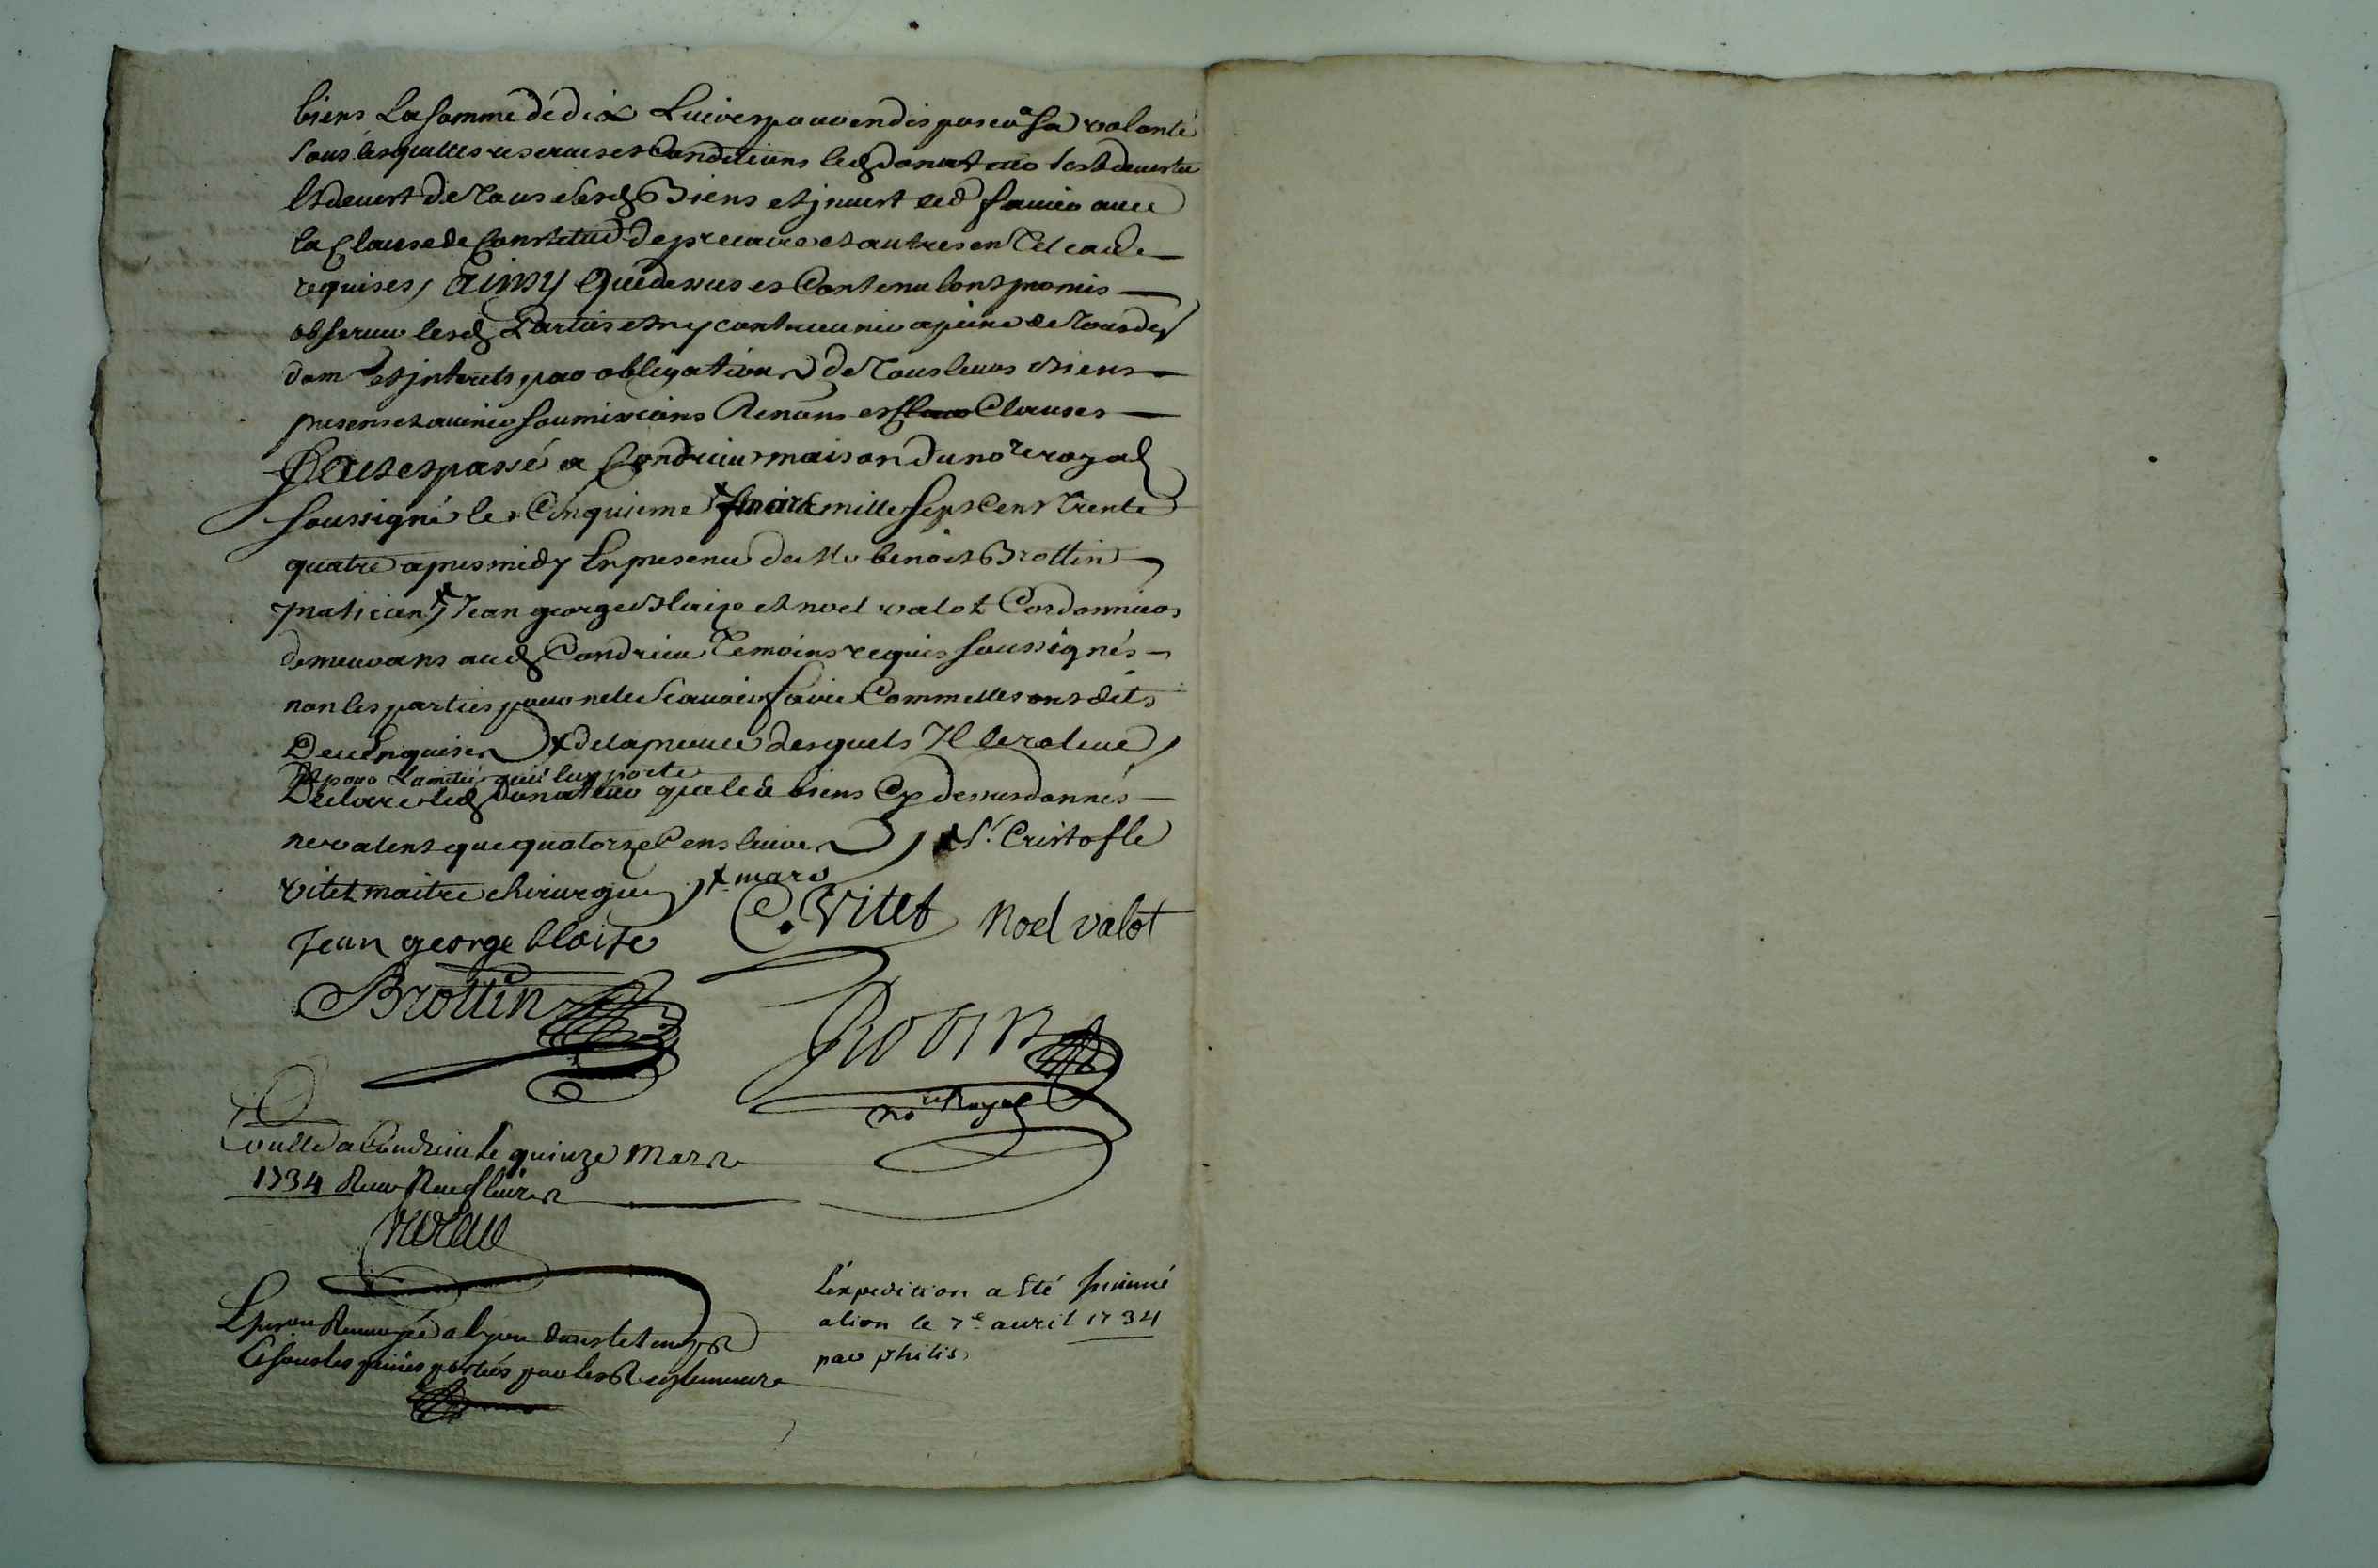 biens La somme de dix Livres pour en disposer a sa volonté
sous lesquelles reserves et Conditions led donateur s'est devestu
Et devest de Tous lesd Biens et jnvest led favier avec
la Clause de Constitud de precaire et autres en Tel cas de
requises, ainsy que dessus et Contenu l'ont promis
observer lesd Parties et ny contrevenir a peine de Tous des
dom et jnterets, par obligation de Tous leurs Biens
presens et avenir soumissions Renons et Clauses
Fait et passé a Condrieu maison du nore royal
soussigné le Cinquieme mille sept Cens Trente
quatre apres midy En presence de Me benoist Brottin
praticien + Jean george Blaize et noel valot Cordonnier
demeurans aud Condrieu Temoins requis soussignés
non les parties pour ne le scavoir faire Comme elles ont dit
De ce Enquises + de la preuve desquels Il le releve,
Et pour L'amitié qu'il luy porte
Declare led Donateur que les biens Cy dessus donnés
ne valent que quatorze Cens livres, + Sr. Cristofle
vitet maitre chirurgien, + mars
C. Vitet Noel valot
Jean george blaise
Brottin
Robin
nore Royal
Controllé a Condrieu le quinze Mars
1734 Receu Neuf livres
L'expedition a Eté jnsinué
a lion le 7e. avril 1734
par philis
renvoyée a Lyon dans le tems
Et sous les peines portées par les reglemens